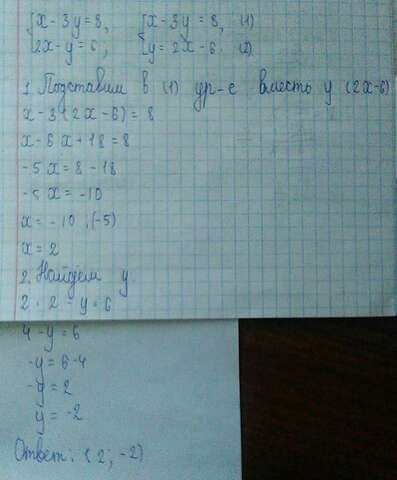 {x - 3y = 8, {x - 3y = 8, (1)
{2x - y = 6; {y = 2x - 6. (2)
1. Подставим в (1) ур-е вместо y (2x-6)
x - 3(2x - 6) = 8
x - 6x + 18 = 8
-5x = 8 - 18
-5x = -10
x = -10 : (-5)
x = 2
2. Найдём y
2 · 2 - y = 6
4 - y = 6
-y = 6-4
-y = 2
y = -2
Ответ: (2; -2)